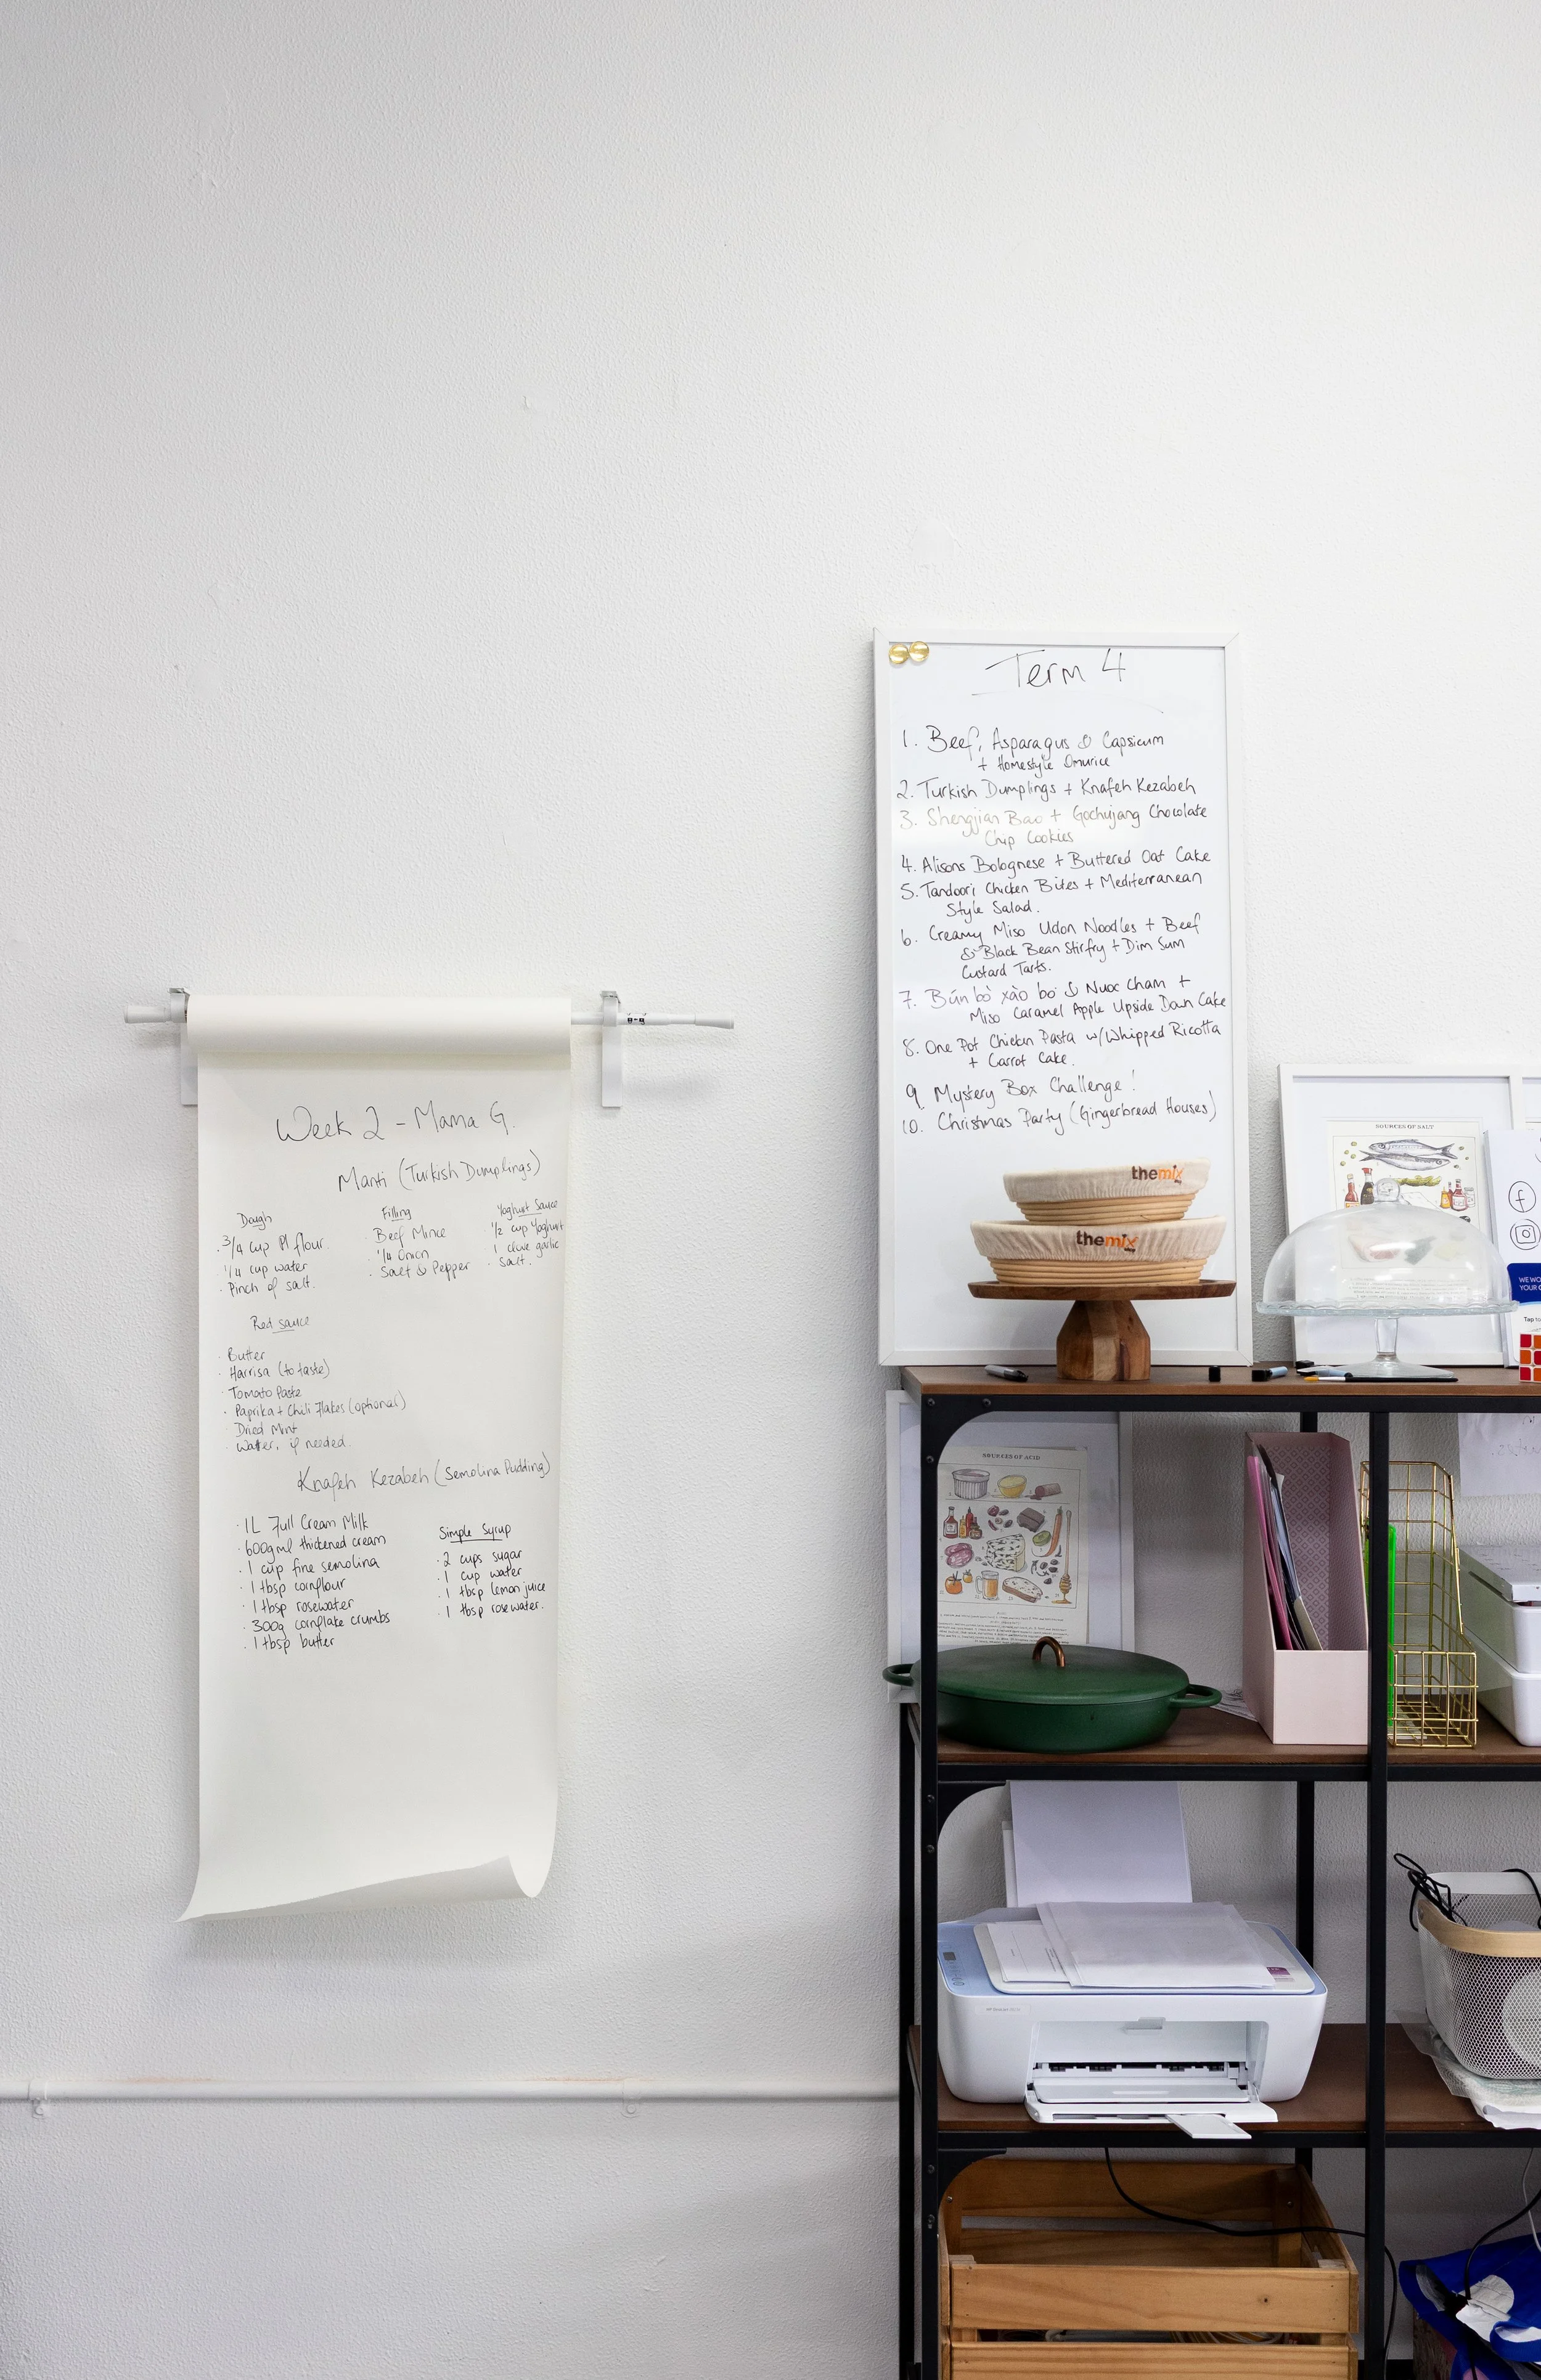 Week 2 - Mama G.
Manti (Turkish Dumplings)
Dough
· 3/4 cup Pl flour
· 1/4 cup water
· Pinch of salt.
Filling
· Beef Mince
· 1/4 Onion
· Salt & Pepper
Yoghurt Sauce
1/2 cup Yoghurt
1 clove garlic
· Salt.
Red sauce
· Butter
· Harrisa (to taste)
· Tomato Paste
· Paprika + Chili Flakes (optional)
· Dried Mint
· Water, if needed.
Knafeh Kezabeh (Semolina Pudding)
· 1L Full Cream Milk
· 600gml thickened cream
· 1 cup fine semolina
· 1 tbsp cornflour
· 1 tbsp rosewater
· 300g cornflake crumbs
· 1 tbsp butter
Simple Syrup
· 2 cups sugar
· 1 cup water
· 1 tbsp lemon juice
· 1 tbsp rosewater.
Term 4
1. Beef, Asparagus & Capsicum
+ Homestyle Omurice
2. Turkish Dumplings + Knafeh Kezabeh
3. Shengjian Bao + Gochujang Chocolate
Chip Cookies
4. Alisons Bolognese + Buttered Oat Cake
5. Tandoori Chicken Bites + Mediterranean
Style Salad.
6. Creamy Miso Udon Noodles + Beef
& Black Bean Stirfry + Dim Sum
Custard Tarts.
7. Bún bò xào bo & Nuoc Cham +
Miso Caramel Apple Upside Down Cake
8. One Pot Chicken Pasta w/Whipped Ricotta
+ Carrot Cake.
9. Mystery Box Challenge!
10. Christmas Party (Gingerbread Houses)
themix
themix
SOURCES OF SALT
WE WO
YOUR
Tap to
SOURCES OF ACID